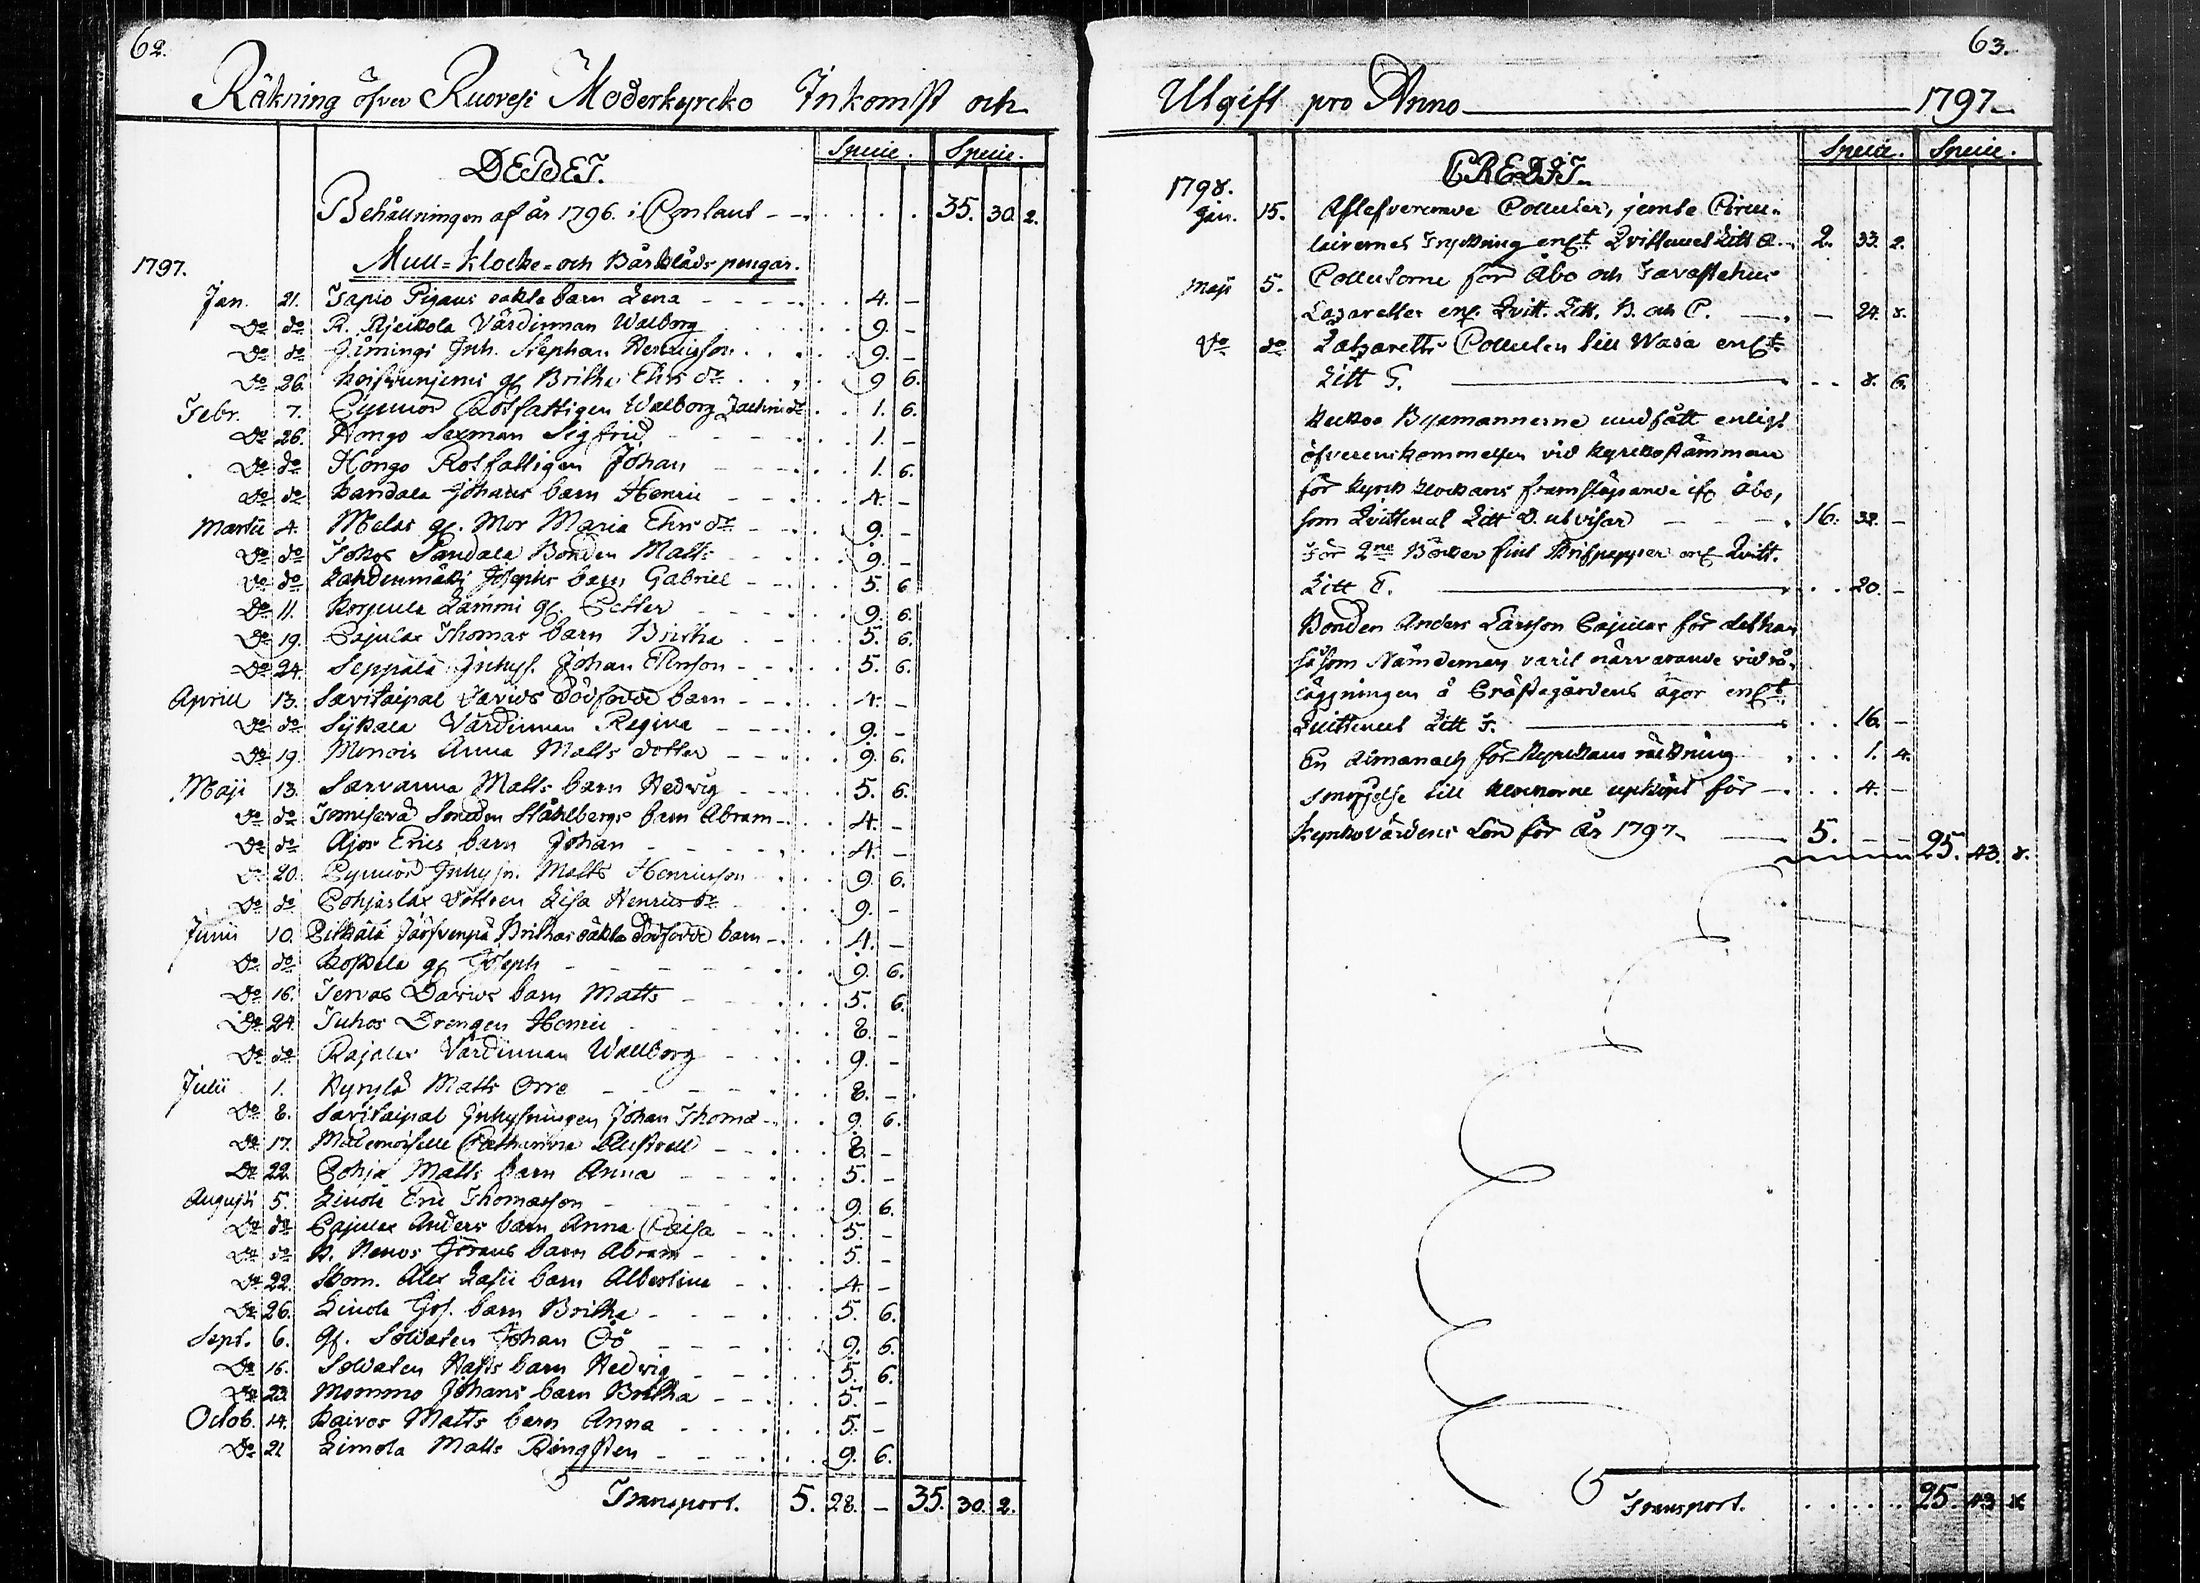 62.
Räkning öfver Ruovesi Moderkyrcko Inkomst och
DEBET.
Specie. Specie.
Behållningen af år 1796. i Contant - - . . . . 35. 30. 2.
Mull- Klocke- och Bårklåds pengar.
1797.
Jan. 21. Tapio Pigans oäkta barn Lena - - - - . . . 4. -
Do do R. Värdinnan Walborg . . . . . 9. -
Do do Inh. Stephan Henricsson . . . . 9. -
Do 26. gl. Britha Ehrs dr . . . . 9 6.
Febr. 7. Rotfattigen Walborg dr . . 1. 6.
Do 26. Hongo Sexman Sigfrid - - - - . . . 1. -
Do do Hongo Rotfattigen Johan - - - - . . . 1. 6.
Do do Johans barn Henric - - - . . . 4. -
Martii 4. gl. Mor Maria Ehrs dr - - . . . 9. -
Do do Bonden Matts - - - . . . 9. -
Do do Lahdenmäki Josephs barn Gabriel - - . . . 5. 6
Do 11. Lammi gl. Petter - - - - . . . 9. 6.
Do 19. Pajulax Thomas barn Britha . - - . . . 5. 6.
Do 24. Seppälä Inhys. Johan - - . . . 5. 6.
Aprill 13. Savitaipal Davids dödfödde barn - - . . . 4. -
Do do Sykälä Värdinnan Regina - - - . . . 9. -
Do 19. Anna Matts dotter - - - . . . 9. 6.
Maji 13. Sarvanna Matts barn Hedvig - - - . . . 5. 6.
Do do Smeden Ståhlbergs barn Abram - . . . 4. -
Do do Ajos Erics barn Johan - - - - . . . 4. -
Do 20. Inhysn. Matts Henricsson . . . . 9. 6.
Do do Pohjaslax Lisa Henrics dr . . . . 9. -
Junii 10. Pitkälä Järfvenpä Brithas oäkta dödfödde barn - . . . 4. -
Do do Koskela gl. Joseph - - - - - . . . 9. 6.
Do 16. Tervas Davids barn Matts - - - . . . 5. 6.
Do 24. Juhos Drengen Henric - - - . . . 8. -
Do do Rajalax Värdinnan Wallborg - - . . . 9. -
Julii 1. Kyrylä Matts Orre - - - - - . . . 8. -
Do 8. Savitaipal Inhysningen Johan Thomæ - . . . 9. 6.
Do 17. Mademoiselle Catharina - - . . . 8. -
Do 22. Pohja Matts barn Anna - - - - . . . 5. -
Augusti 5. Eric Thomasson - - - - . . . 9. 6.
Do do Pajulax Anders barn Anna Caisa - - . . . 5. -
Do do Görans barn Abram - - . . . 5. -
Do 22. Skom. Alex barn Albertina - . . . 4. -
Do 26. barn Britha - - - - . . . 5. 6.
Sept. 6. gl. Soldaten Johan Öö - - - - . . . 9. 6.
Do 16. Soldaten barn Hedvig - - - . . . 5. 6.
Do 23. Mommo Johans barn Britha - - . . . 5. -
Octob. 14. Kaivos Matts barn Anna . . . . . . 5. -
Do 21 Limola Matts Bängsten - - - - . . . 9. 6.
Transport. 5. 28. - 35. 30. 2.
63.
Utgift pro Anno 1797.
CREDIT.
Specie. Specie.
1798.
Jan. 15. Aflefvererade Collecter, jemte Circu-
lairernes enl:t Qvittencel Litt A. 2. 33. 2.
Maji 5. Collecterne för Åbo och Tavastehus
Lazaretter enl. Qvitt. Litt. B. och C. - - 24. 8.
Do do Lazaretts Collecten till Wasa enl:t
Litt 8. 6.
Byamannerne undfått enligt
öfverenskommelsen vid Kyrckostämman
för Kyrck Klockans framsläpande Åbo,
som Qvittencel Litt D. utvisar - - - . 16. 32. -
För 2ne Böcker fint Skrifpapper enl. Qvitt.
Litt E. . . 20. -
Bonden Anders Larsson Pajulax för det han
såsom Nämdeman varit närvarande vid rå-
läggningen å Prästegårdens ägor enl:t
Quittencel Litt F. . . 16. -
En Almanach för Kyrckans räckning . . . 1. 4.
smörjelse till Klockorne upköpt för . . . 4. -
Kyrkovärdens Lön för År 1797. 5. - - 25. 43. 8.
Transport. . . . . . . 25. 43 8.